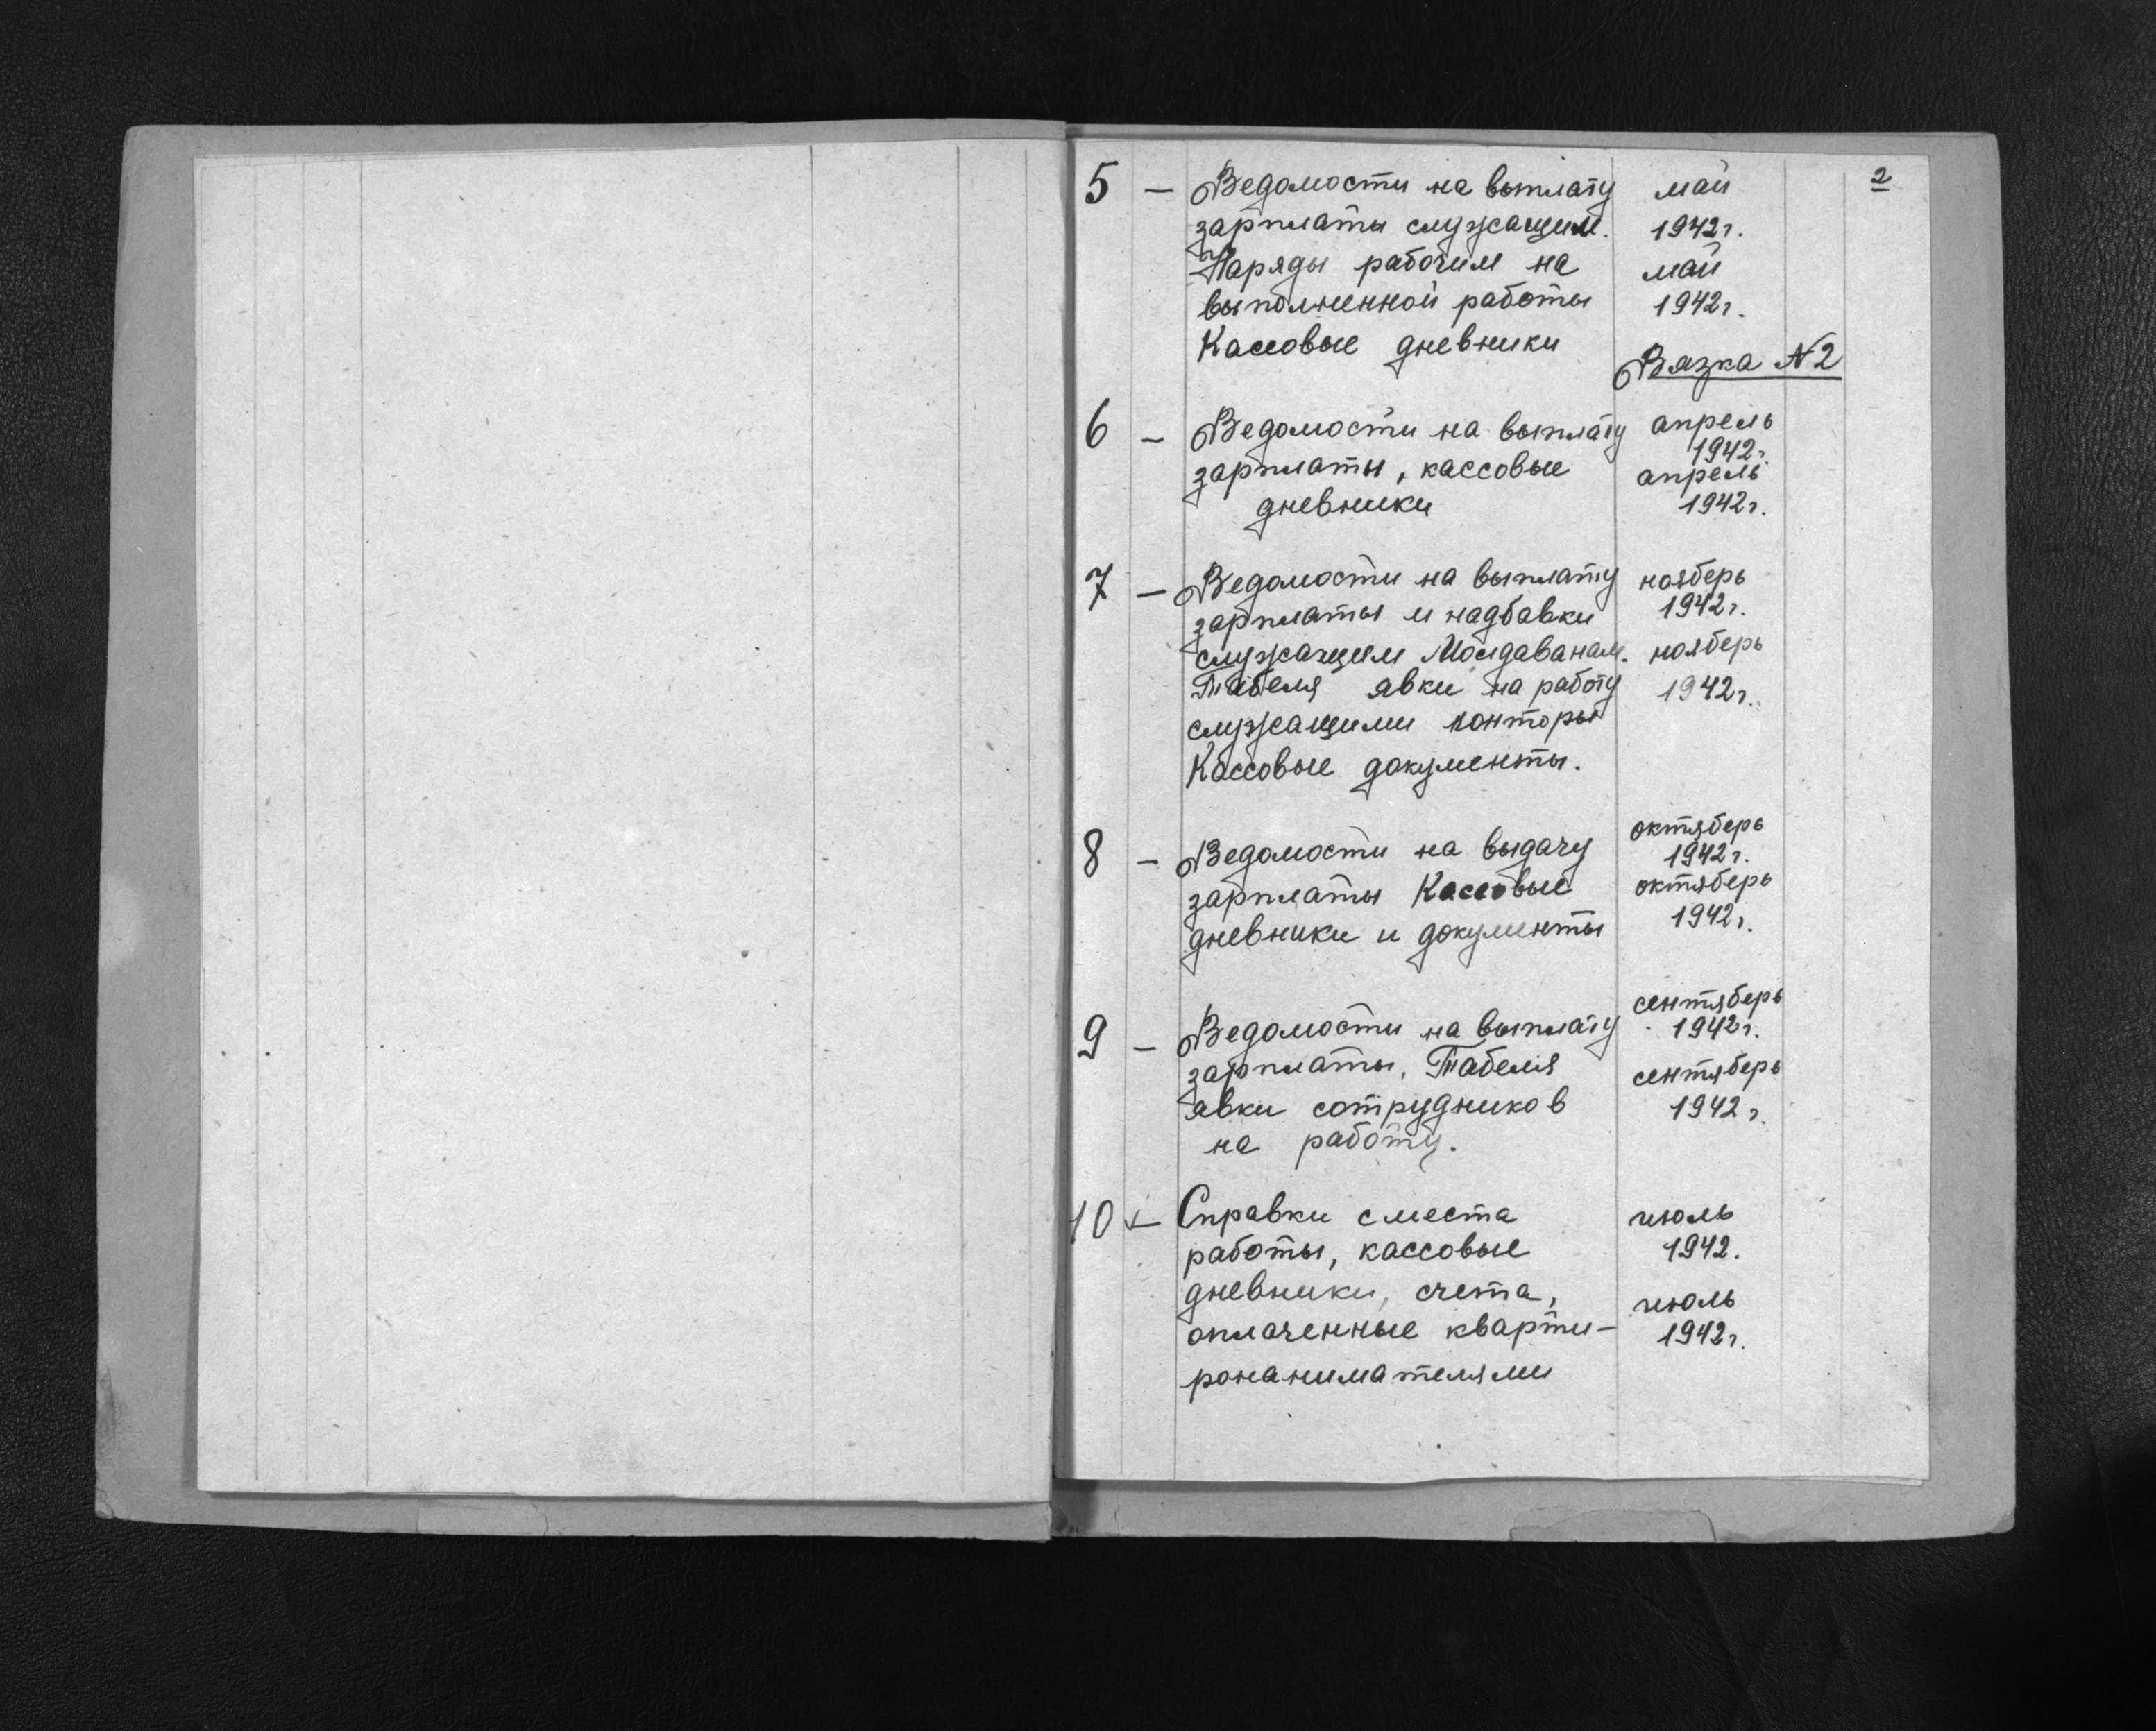 2
5 — Ведомости на выплату май
зарплаты служащим. 1942г.
Наряды рабочим на май
выполненной работы 1942г.
Кассовые дневники
Вязка №2
6 — Ведомости на выплату апрель
1942г.
зарплаты, кассовые апрель
дневники 1942г.
7 — Ведомости на выплату нояберь
зарплаты и надбавки 1942г.
служащим Молдаванам. нояберь
Табеля явки на работу 1942г.
служащими конторы
Кассовые документы.
октяберь
8 — Ведомости на выдачу 1942г.
зарплаты Кассовые октяберь
дневники и документы 1942г.
сентяберь
9 — Ведомости на выплату 1942г.
зарплаты, Табеля сентяберь
явки сотрудников 1942г.
на работу.
10 — Справки с места июль
работы, кассовые 1942.
дневники, счета, июль
оплаченные кварти- 1942г.
ронанимателями